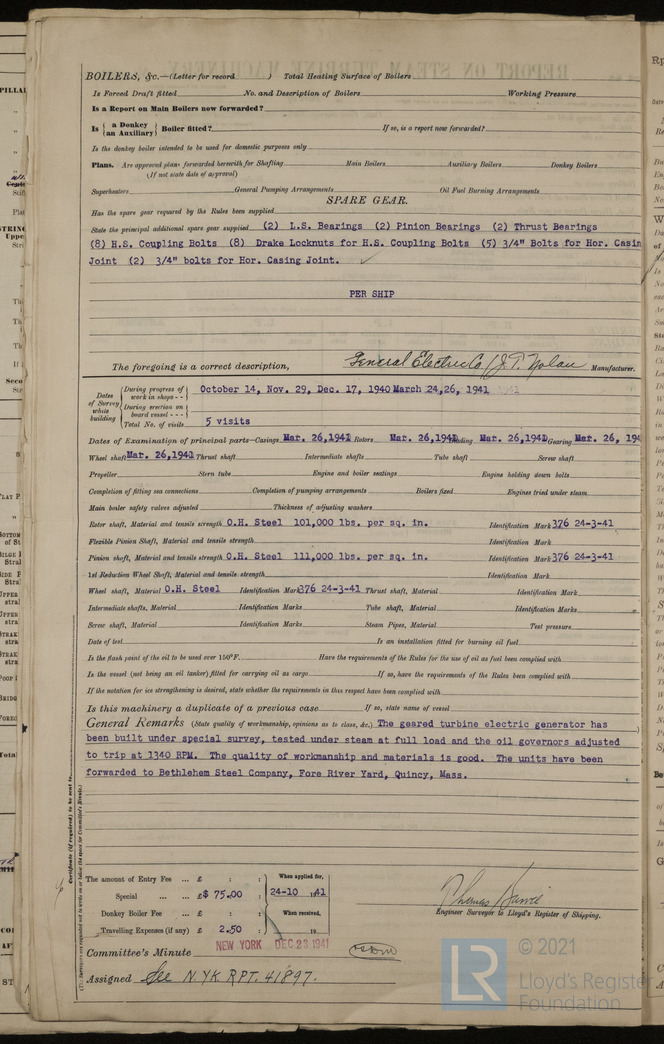 BOILERS, &c.—(Letter for record ) Total Heating Surface of Boilers
Is Forced Draft fitted No. and Description of Boilers Working Pressure
Is a Report on Main Boilers now forwarded?
Is { a Donkey / an Auxiliary } Boiler fitted? If so, is a report now forwarded?
Is the donkey boiler intended to be used for domestic purposes only
Plans. Are approved plans forwarded herewith for Shafting Main Boilers Auxiliary Boilers Donkey Boilers
(If not state date of approval)
Superheaters General Pumping Arrangements Oil Fuel Burning Arrangements
SPARE GEAR.
Has the spare gear required by the Rules been supplied
State the principal additional spare gear supplied (2) L.S. Bearings (2) Pinion Bearings (2) Thrust Bearings
(8) H.S. Coupling Bolts (8) Drake Locknuts for H.S. Coupling Bolts (5) 3/4" Bolts for Hor. Casin
Joint (2) 3/4" bolts for Hor. Casing Joint. ✓
PER SHIP
The foregoing is a correct description, General Electric Co. / J.T. Nolan Manufacturer.
Dates of Survey while building
During progress of work in shops - - October 14, Nov. 29, Dec. 17, 1940 March 24,26, 1941
During erection on board vessel - - -
Total No. of visits 5 visits
Dates of Examination of principal parts—Casings Mar. 26,1941 Rotors Mar. 26,1941 Blading Mar. 26,1941 Gearing Mar. 26, 194
Wheel shaft Mar. 26,1941 Thrust shaft Intermediate shafts Tube shaft Screw shaft
Propeller Stern tube Engine and boiler seatings Engine holding down bolts
Completion of fitting sea connections Completion of pumping arrangements Boilers fixed Engines tried under steam
Main boiler safety valves adjusted Thickness of adjusting washers
Rotor shaft, Material and tensile strength O.H. Steel 101,000 lbs. per sq. in. Identification Mark 376 24-3-41
Flexible Pinion Shaft, Material and tensile strength Identification Mark
Pinion shaft, Material and tensile strength O.H. Steel 111,000 lbs. per sq. in. Identification Mark 376 24-3-41
1st Reduction Wheel Shaft, Material and tensile strength Identification Mark
Wheel shaft, Material O.H. Steel Identification Mark 376 24-3-41 Thrust shaft, Material Identification Mark
Intermediate shafts, Material Identification Marks Tube shaft, Material Identification Marks
Screw shaft, Material Identification Marks Steam Pipes, Material Test pressure
Date of test Is an installation fitted for burning oil fuel
Is the flash point of the oil to be used over 150°F. Have the requirements of the Rules for the use of oil as fuel been complied with
Is the vessel (not being an oil tanker) fitted for carrying oil as cargo If so, have the requirements of the Rules been complied with
If the notation for ice strengthening is desired, state whether the requirements in this respect have been complied with
Is this machinery a duplicate of a previous case If so, state name of vessel
General Remarks (State quality of workmanship, opinions as to class, &c.) The geared turbine electric generator has
been built under special survey, tested under steam at full load and the oil governors adjusted
to trip at 1340 RPM. The quality of workmanship and materials is good. The units have been
forwarded to Bethlehem Steel Company, Fore River Yard, Quincy, Mass.
The amount of Entry Fee ... £ : : When applied for,
Special ... ... £ $ 75.00 : 24-10 1941
Donkey Boiler Fee ... £ : : When received,
Travelling Expenses (if any) £ 2.50 : 19
Engineer Surveyor to Lloyd's Register of Shipping.
NEW YORK DEC 23 1941
Committee's Minute
Assigned See N YK RPT. 41897.
LR © 2021
Lloyd's Register
Foundation